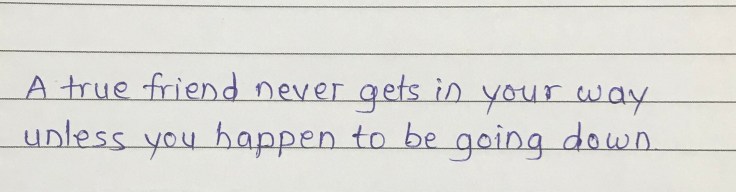 A true friend never gets in your way
unless you happen to be going down.